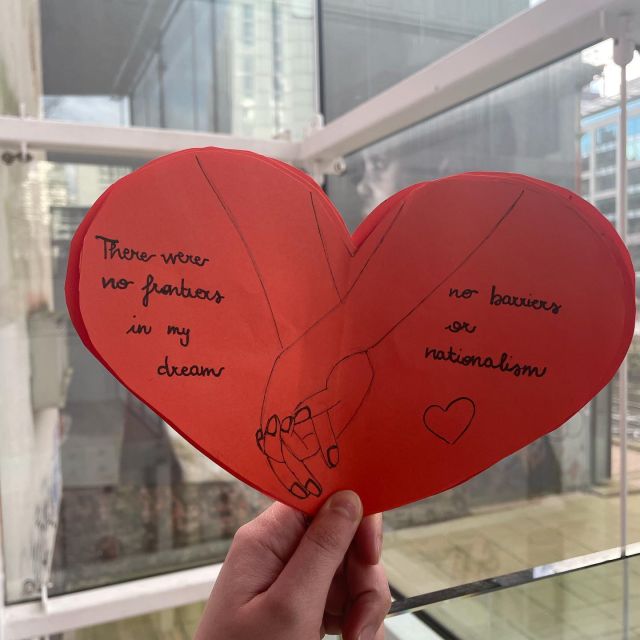 There were
no frontiers
in my
dream
no barriers
or
nationalism